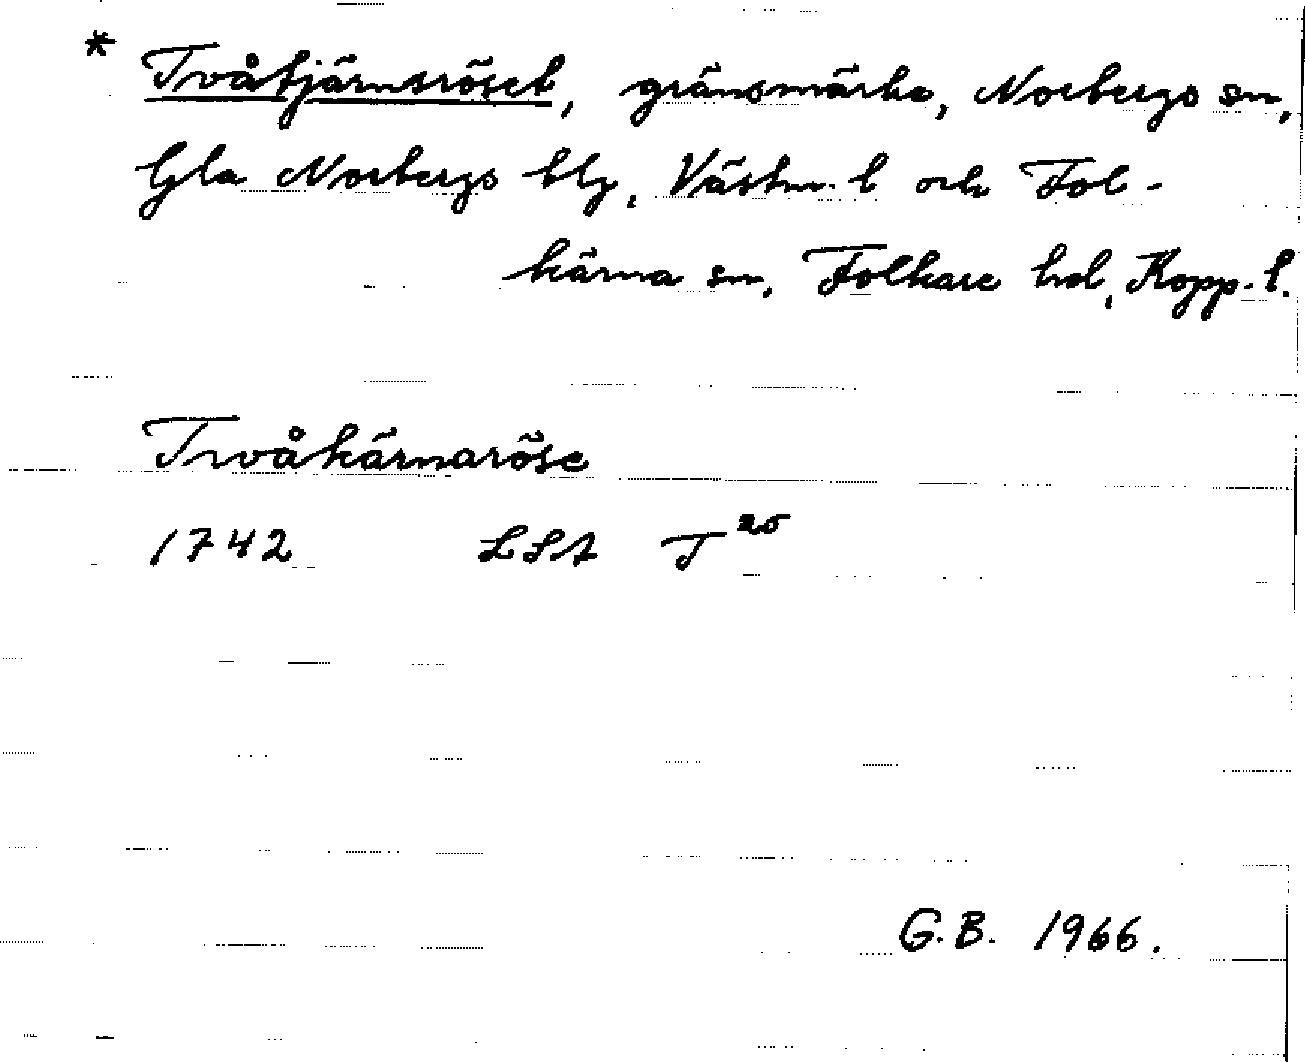 * Tvåtjärnsröset, gränsmärke, Norbergs sn,
Gla Norbergs blg, Västm. l och Fol-
kärna sn, Folkare hd, Kopp. l.
Tvåkärnaröse
1742 LSA T²⁰
G.B. 1966.